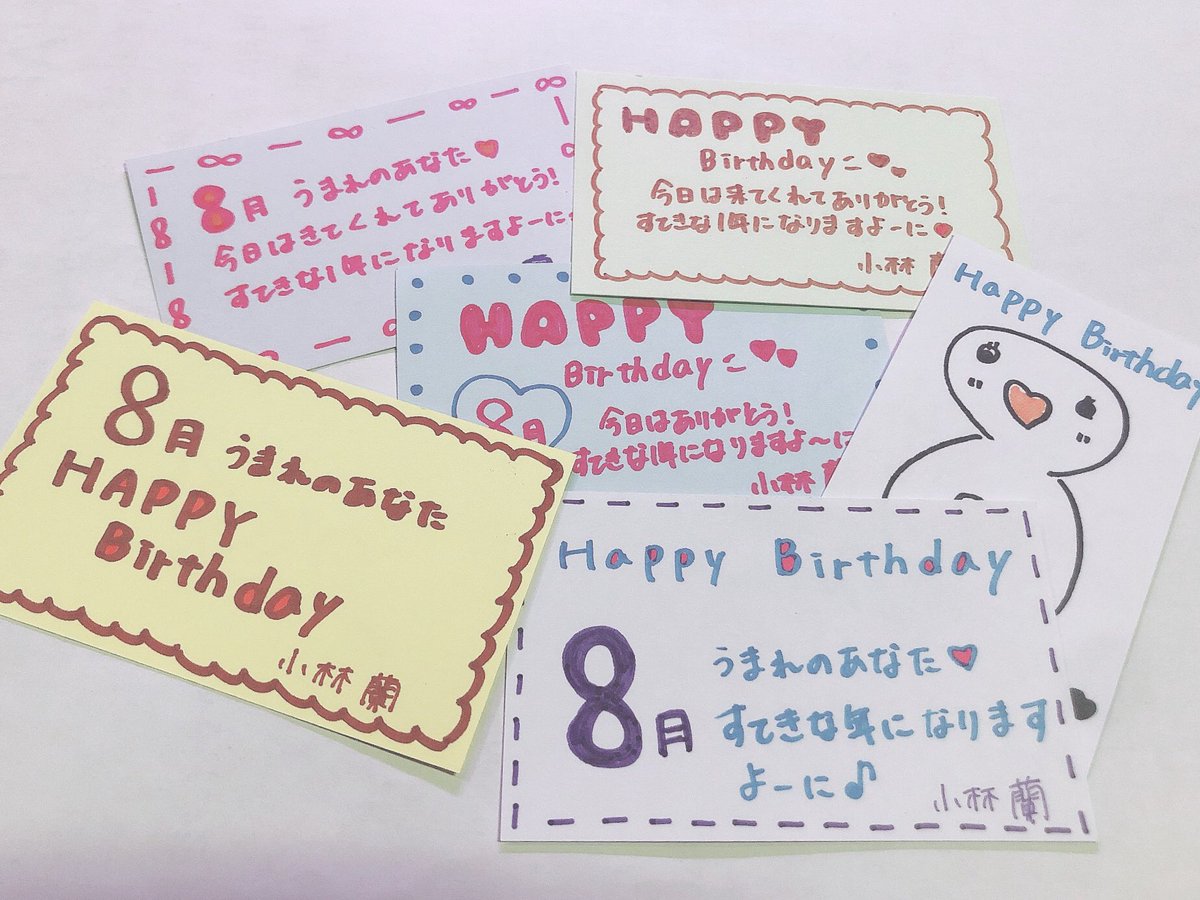 8月 うまれのあなた
今日はきてくれてありがとう!
すてきな1年になりますよーに
HAPPY
Birthday
今日は来てくれてありがとう!
すてきな1年になりますよーに
小林
HAPPY
Birthday
8月
今日はありがとう!
すてきな1年になりますよ〜に
小林
Happy Birthday
8月 うまれのあなた
HAPPY
Birthday
小林 蘭
Happy Birthday
8月
うまれのあなた
すてきな年になります
よーに♪
小林 蘭